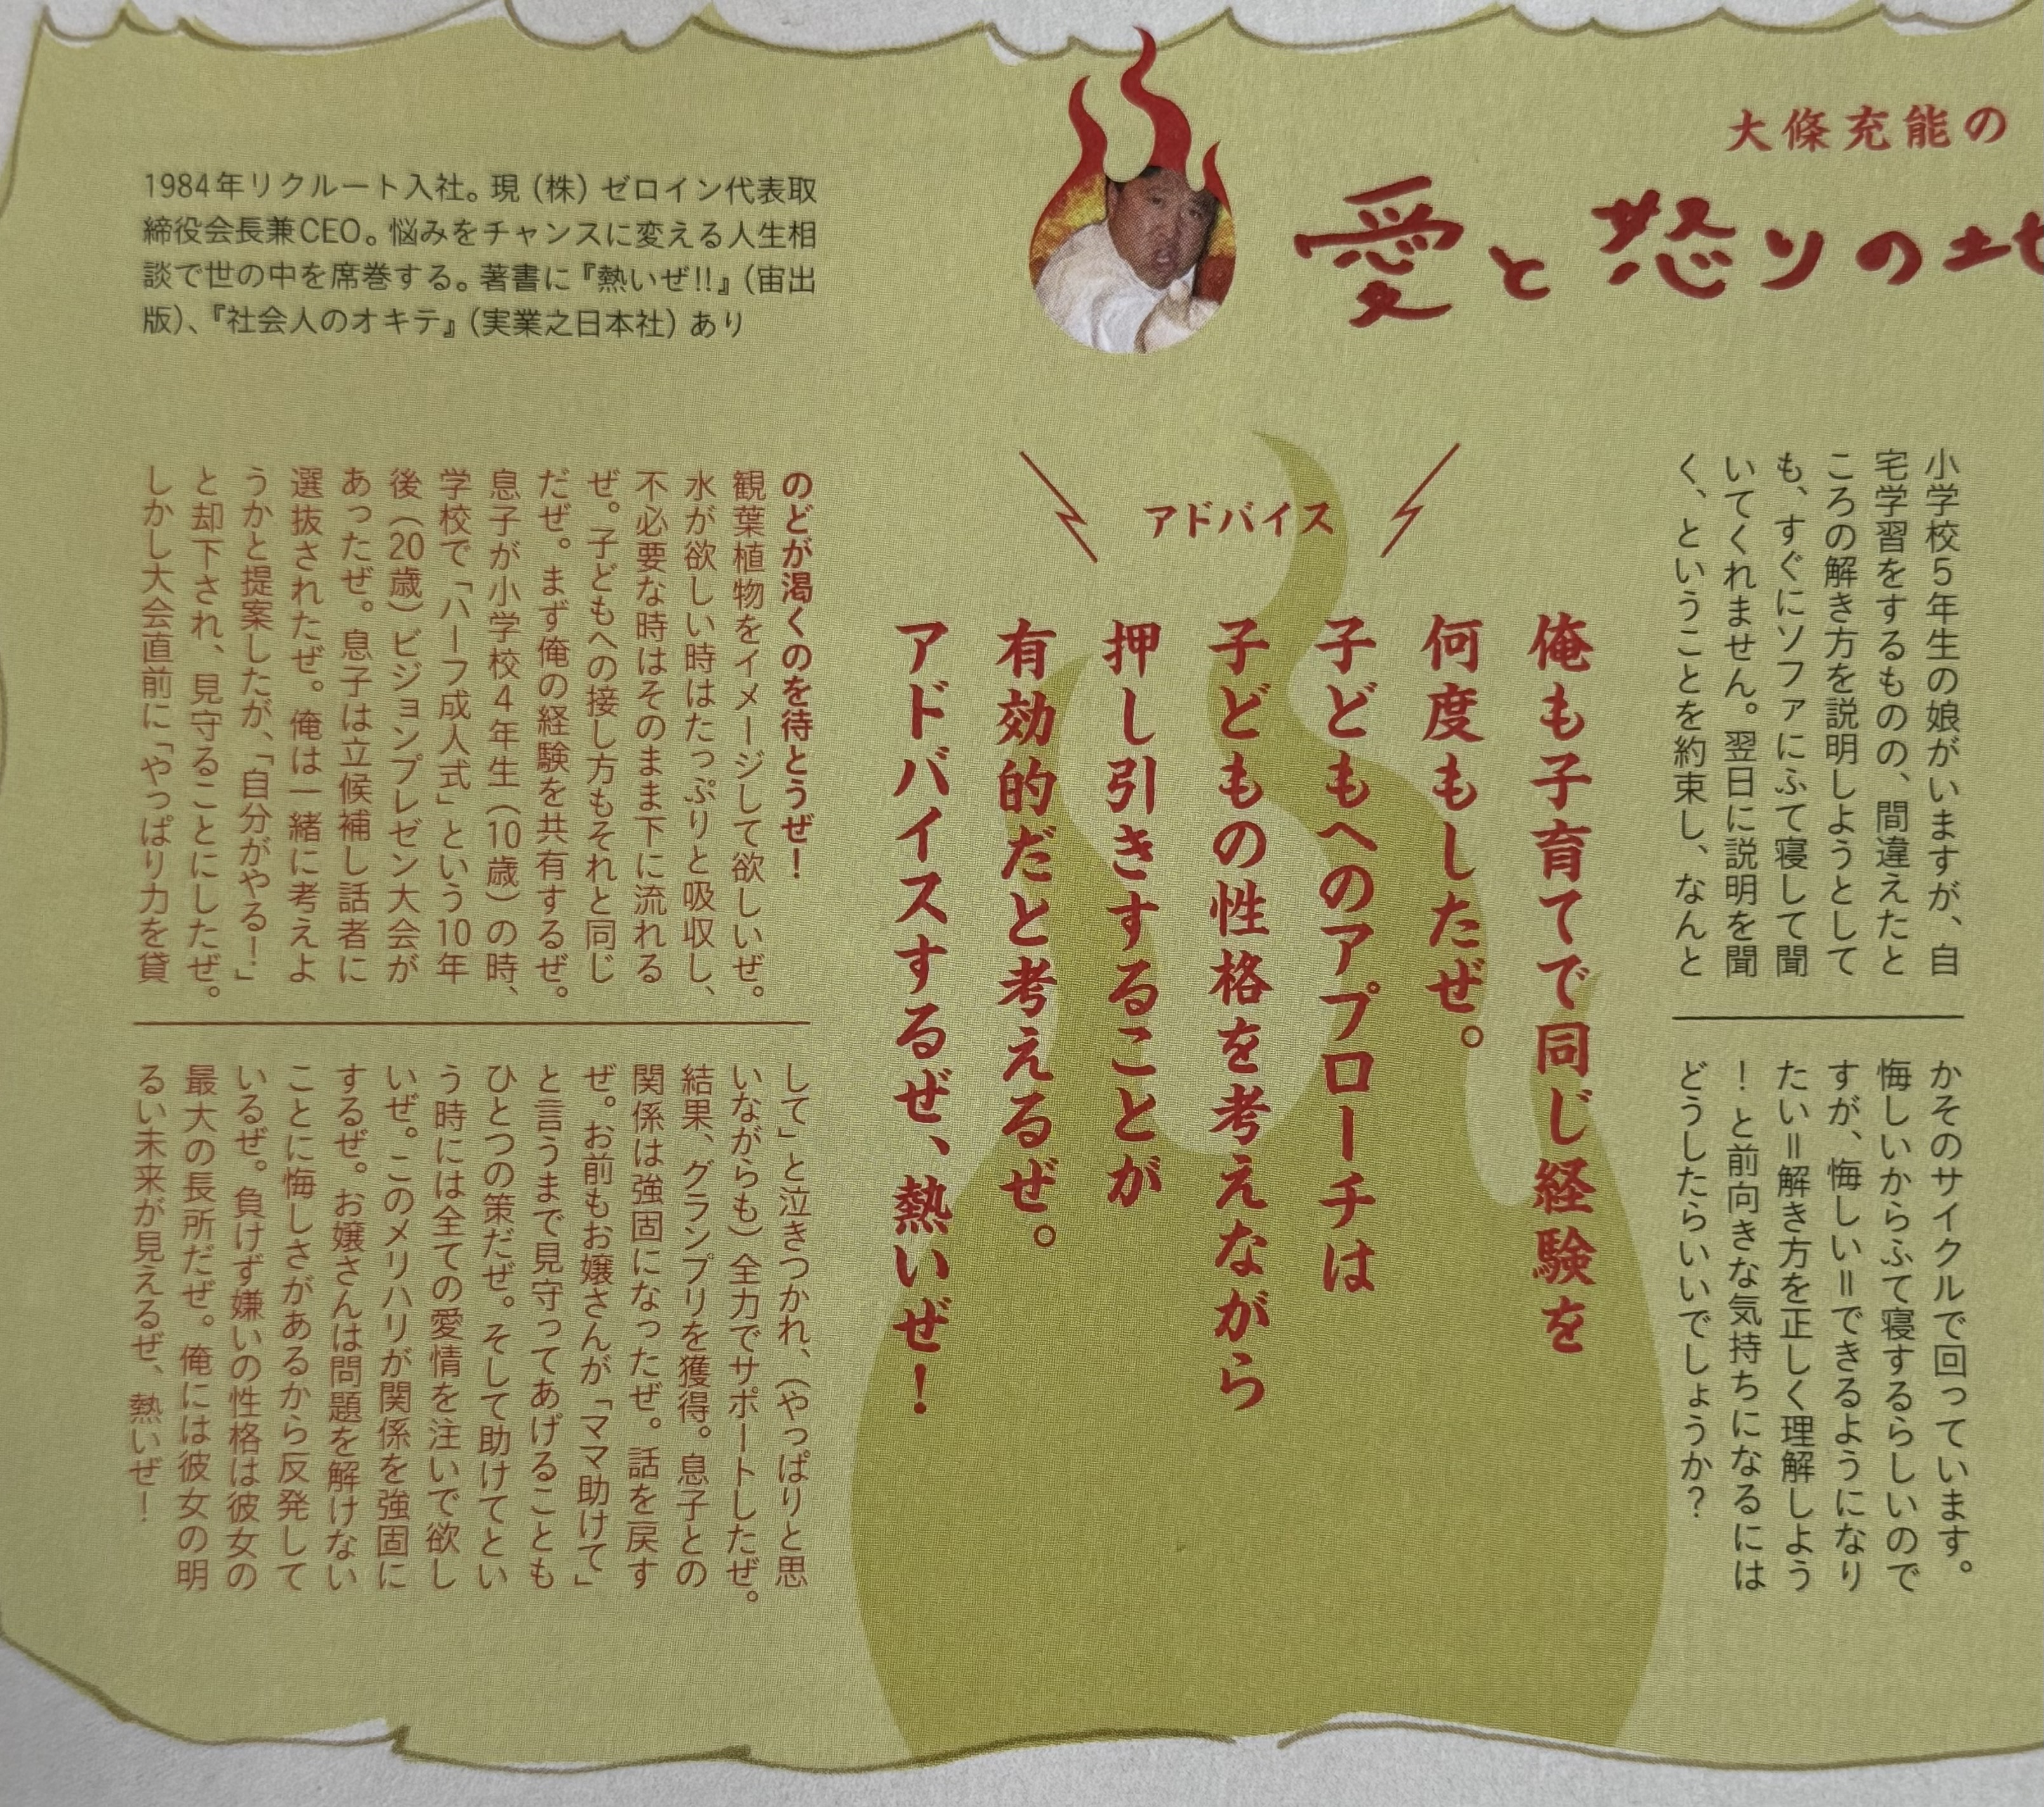 大條充能の
愛と怒りの地
1984年リクルート入社。現（株）ゼロイン代表取
締役会長兼CEO。悩みをチャンスに変える人生相
談で世の中を席巻する。著書に『熱いぜ!!』（宙出
版）、『社会人のオキテ』（実業之日本社）あり
小学校5年生の娘がいますが、自
宅学習をするものの、間違えたと
ころの解き方を説明しようとして
も、すぐにソファにふて寝して聞
いてくれません。翌日に説明を聞
く、ということを約束し、なんと
かそのサイクルで回っています。
悔しいからふて寝するらしいので
すが、悔しい＝できるようになり
たい＝解き方を正しく理解しよう
！と前向きな気持ちになるには
どうしたらいいでしょうか？
アドバイス
俺も子育てで同じ経験を
何度もしたぜ。
子どもへのアプローチは
子どもの性格を考えながら
押し引きすることが
有効的だと考えるぜ。
アドバイスするぜ、熱いぜ！
のどが渇くのを待とうぜ！
観葉植物をイメージして欲しいぜ。
水が欲しい時はたっぷりと吸収し、
不必要な時はそのまま下に流れる
ぜ。子どもへの接し方もそれと同じ
だぜ。まず俺の経験を共有するぜ。
息子が小学校4年生（10歳）の時、
学校で「ハーフ成人式」という10年
後（20歳）ビジョンプレゼン大会が
あったぜ。息子は立候補し話者に
選抜されたぜ。俺は一緒に考えよ
うかと提案したが、「自分がやる！」
と却下され、見守ることにしたぜ。
しかし大会直前に「やっぱり力を貸
して」と泣きつかれ、（やっぱりと思
いながらも）全力でサポートしたぜ。
結果、グランプリを獲得。息子との
関係は強固になったぜ。話を戻す
ぜ。お前もお嬢さんが「ママ助けて」
と言うまで見守ってあげることも
ひとつの策だぜ。そして助けてとい
う時には全ての愛情を注いで欲し
いぜ。このメリハリが関係を強固に
するぜ。お嬢さんは問題を解けない
ことに悔しさがあるから反発して
いるぜ。負けず嫌いの性格は彼女の
最大の長所だぜ。俺には彼女の明
るい未来が見えるぜ、熱いぜ！